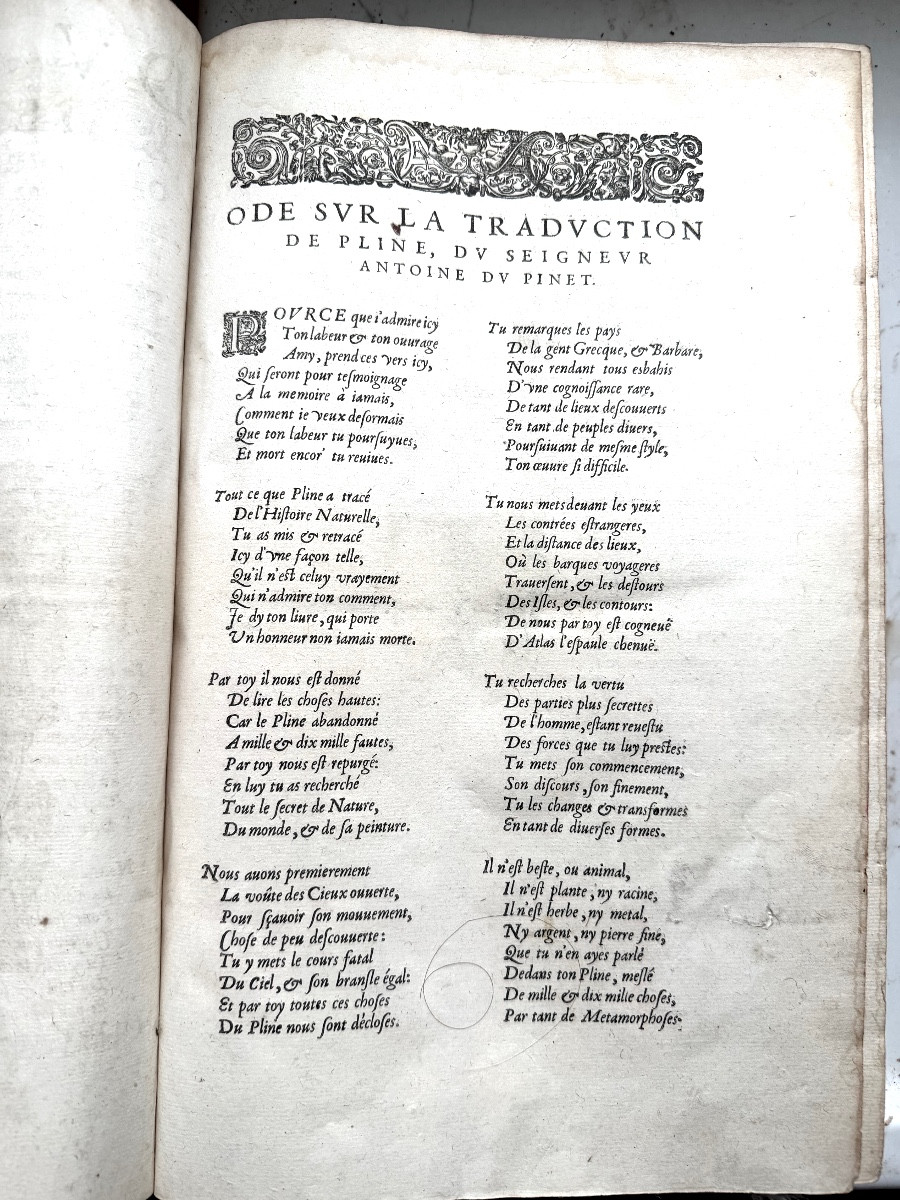 ODE SVR LA TRADVCTION
DE PLINE, DV SEIGNEVR
ANTOINE DV PINET.
POVRCE que i'admire icy
Ton labeur & ton ouurage
Amy, prend ces vers icy,
Qui ſeront pour teſmoignage
A la memoire à iamais,
Comment ie veux deſormais
Que ton labeur tu pourſuyues,
Et mort encor' tu reuiues.
Tout ce que Pline a tracé
De l'Hiſtoire Naturelle,
Tu as mis & retracé
Icy d'vne façon telle,
Qu'il n'eſt celuy vrayement
Qui n'admire ton comment,
Je dy ton liure, qui porte
Vn honneur non iamais morte.
Par toy il nous eſt donné
De lire les choſes hautes:
Car le Pline abandonné
A mille & dix mille fautes,
Par toy nous eſt repurgé:
En luy tu as recherché
Tout le ſecret de Nature,
Du monde, & de ſa peinture.
Nous auons premierement
La voûte des Cieux ouuerte,
Pour ſçauoir ſon mouuement,
Choſe de peu deſcouuerte:
Tu y mets le cours fatal
Du Ciel, & ſon branſle égal:
Et par toy toutes ces choſes
Du Pline nous ſont décloſes.
Tu remarques les pays
De la gent Grecque, & Barbare,
Nous rendant tous esbahis
D'vne cognoiſſance rare,
De tant de lieux deſcouuerts
En tant de peuples diuers,
Pourſuiuant de meſme ſtyle,
Ton œuure ſi difficile.
Tu nous mets deuant les yeux
Les contrées eſtrangeres,
Et la diſtance des lieux,
Où les barques voyageres
Trauerſent, & les deſtours
Des Iſles, & les contours:
De nous par toy eſt cogneuë
D'Atlas l'eſpaule chenuë.
Tu recherches la vertu
Des parties plus ſecrettes
De l'homme, eſtant reueſtu
Des forces que tu luy preſtes:
Tu mets ſon commencement,
Son diſcours, ſon finement,
Tu les changes & transformes
En tant de diuerſes formes.
Il n'eſt beſte, ou animal,
Il n'eſt plante, ny racine,
Il n'eſt herbe, ny metal,
Ny argent, ny pierre fine,
Que tu n'en ayes parlé
Dedans ton Pline, meſlé
De mille & dix mille choſes,
Par tant de Metamorphoſes.